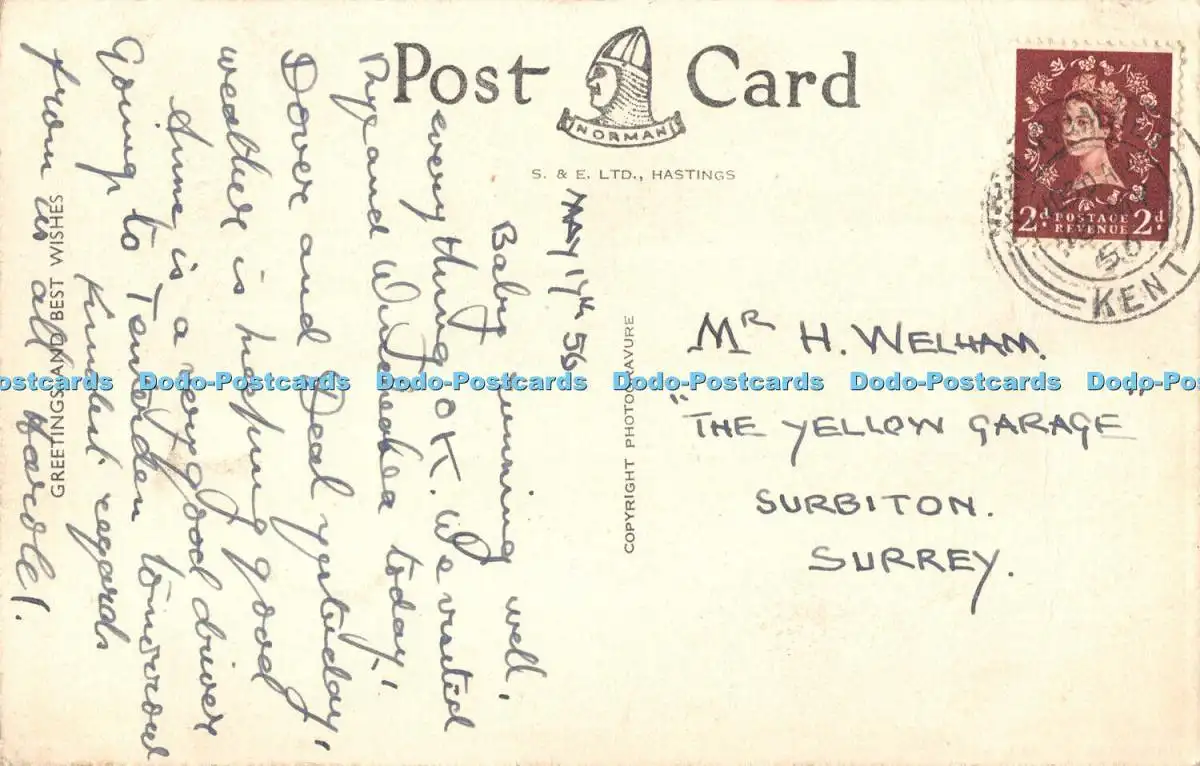 Post Card
NORMAN
S. & E. LTD., HASTINGS
MAY 17th 56
Baby running well,
everything OK. We visited
Rye and Winchelsea today,
Dover and Deal yesterday,
weather is keeping good
Anne is a very good driver
Going to Tenterden tomorrow
Kindest regards
from us all Harold.
GREETINGS AND BEST WISHES
COPYRIGHT PHOTOGRAVURE
2d. POSTAGE REVENUE 2d.
56
KENT
Mr H. WELHAM.
"THE YELLOW GARAGE"
SURBITON.
SURREY.
Dodo-Postcards Dodo-Postcards Dodo-Postcards Dodo-Postcards Dodo-Postcards Dodo-Postcards